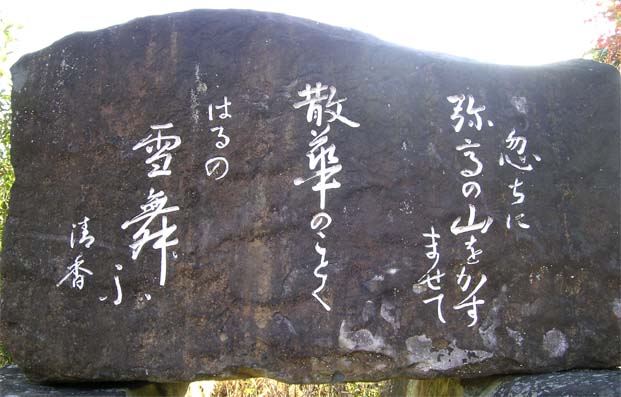 忽ちに
弥高の山をかす
ませて
散華のことく
はるの
雪舞ふ
清香